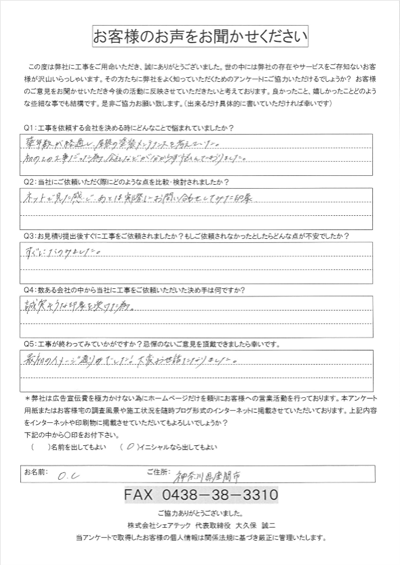 お客様のお声をお聞かせください
この度は弊社に工事をご用命いただき、誠にありがとうございました。世の中には弊社の存在やサービスをご存知ないお客
様が沢山いらっしゃいます。その方たちに弊社をよく知っていただくためのアンケートにご協力いただけるでしょうか? お客様
のご意見をお聞かせいただき今後の活動に反映させていただきたいと考えております。良かったこと、嬉しかったことどのよう
な些細な事でも結構です。是非ご協力お願い致します。(出来るだけ具体的に書いていただければ幸いです)
Q1:工事を依頼する会社を決める時にどんなことで悩まれていましたか?
築年数が経過し、屋根の塗装メンテナンスを考えていた。
初めての工事だった為
Q2:当社にご依頼いただく際にどのような点を比較・検討されましたか?
ネットで見た感じ、あとは実際にお問い合わせしてみた印象
Q3:お見積り提出後すぐに工事をご依頼されましたか?もしご依頼されなかったとしたらどんな点が不安でしたか?
すぐにたのみました。
Q4:数ある会社の中から当社に工事をご依頼いただいた決め手は何ですか?
誠実そうな印象を受けた為。
Q5:工事が終わってみていかがですか?忌憚のないご意見を頂戴できましたら幸いです。
最初のイメージ通りでした。大変お世話になりました。
*弊社は広告宣伝費を極力かけない為にホームページだけを頼りにお客様への営業活動を行っております。本アンケート
用紙またはお客様宅の調査風景や施工状況を随時ブログ形式のインターネットに掲載させていただいております。上記内容
をインターネットや印刷物に掲載させていただいてもよろしいでしょうか?
下記の中から〇印をお付下さい。
( )名前を出してもよい (〇)イニシャルなら出してもよい
お名前: O.C ご住所: 神奈川県座間市
FAX 0438-38-3310
ご協力ありがとうございました。
株式会社シェアテック 代表取締役 大久保 誠二
当アンケートで取得したお客様の個人情報は関係法規に基づき厳正に管理いたします。